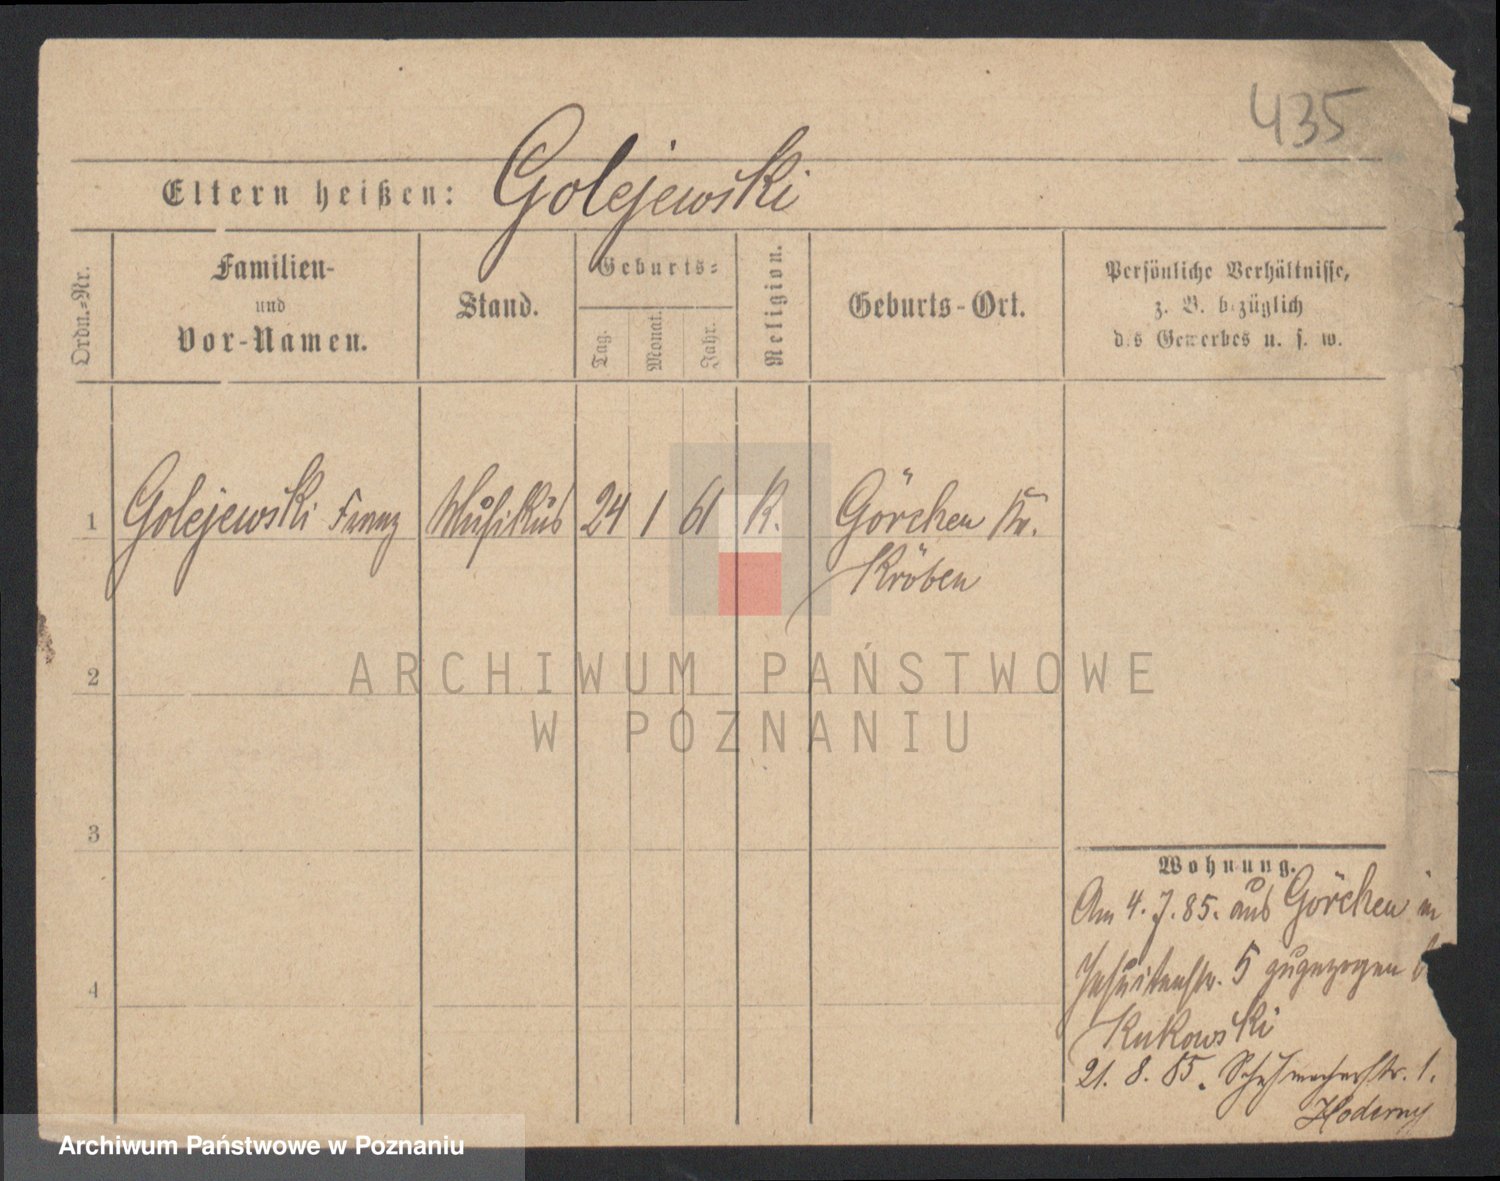 435
Eltern heißen: Golejewski
Ordn.-Nr.
Familien-
und
Vor-Namen.
Stand.
Geburts-
Tag.
Monat.
Jahr.
Religion.
Geburts-Ort.
Persönliche Verhältnisse,
z. B. bezüglich
des Gewerbes u. s. w.
1 Golejewski Franz Musikus 24 1 61 K. Görchen Kr.
Kröben
2
3
4
Wohnung.
Am 4. 7. 85. aus Görchen in
Jesuitenstr. 5 zugezogen b
Kukowski
21. 8. 85. Schuhmacherstr. 1.
ARCHIWUM PAŃSTWOWE
W POZNANIU
Archiwum Państwowe w Poznaniu